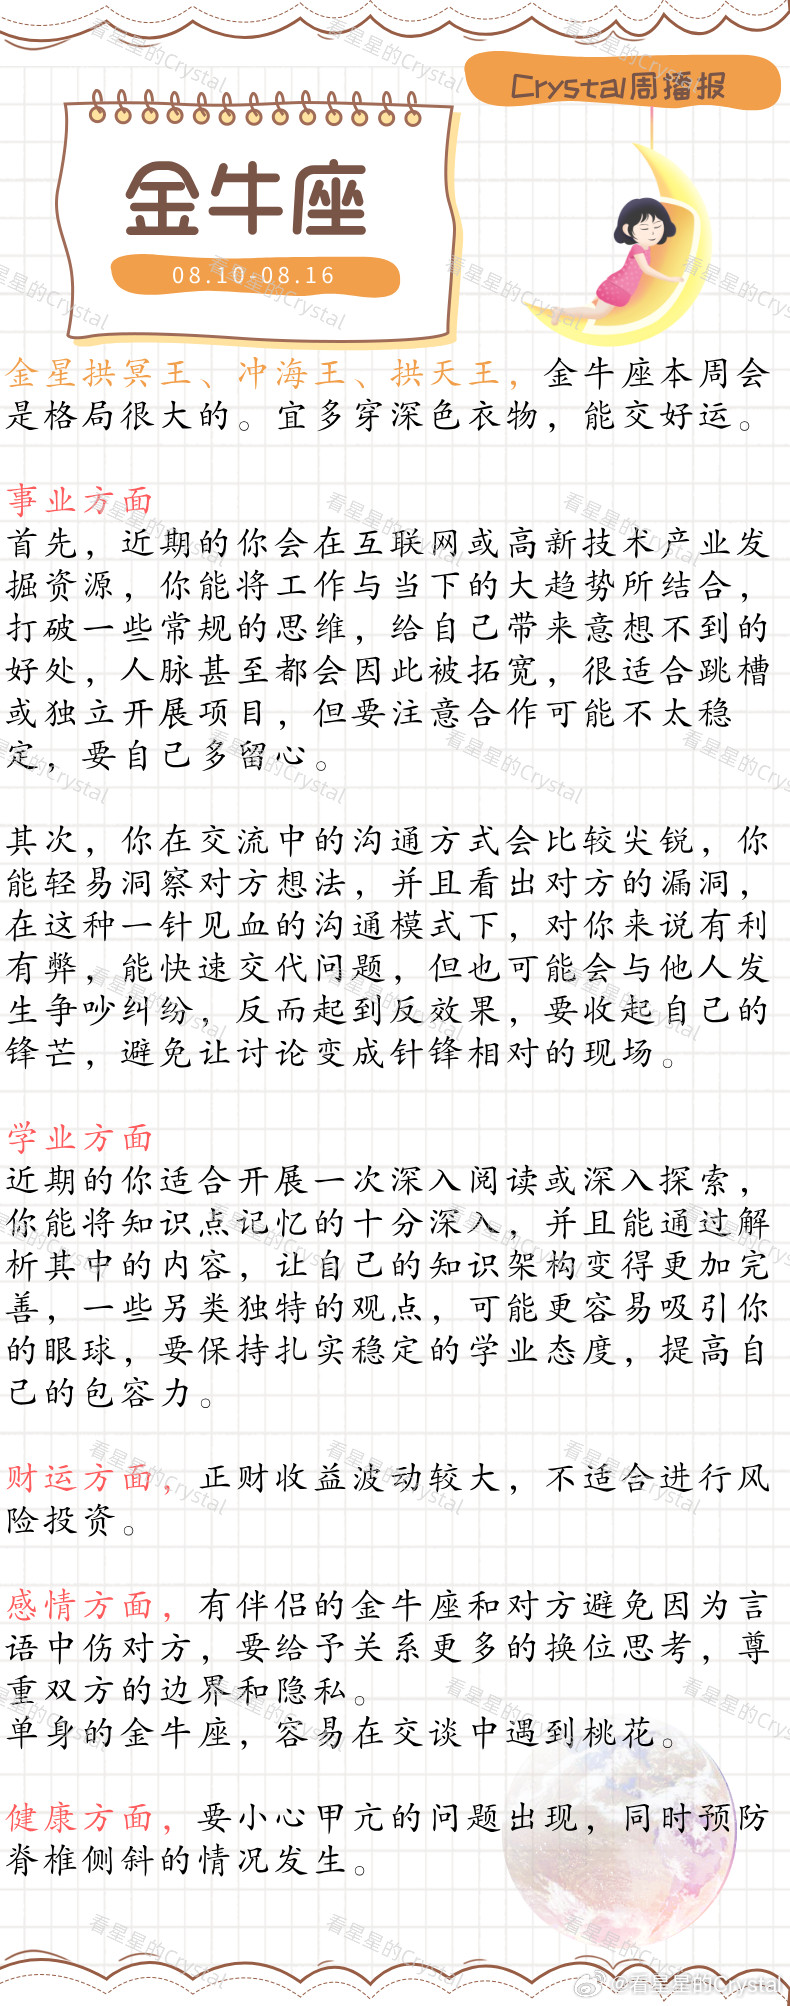 Crystal周播报
金牛座
08.10-08.16
金星拱冥王、冲海王、拱天王，金牛座本周会
是格局很大的。宜多穿深色衣物，能交好运。
事业方面
首先，近期的你会在互联网或高新技术产业发
掘资源，你能将工作与当下的大趋势所结合，
打破一些常规的思维，给自己带来意想不到的
好处，人脉甚至都会因此被拓宽，很适合跳槽
或独立开展项目，但要注意合作可能不太稳
定，要自己多留心。
其次，你在交流中的沟通方式会比较尖锐，你
能轻易洞察对方想法，并且看出对方的漏洞，
在这种一针见血的沟通模式下，对你来说有利
有弊，能快速交代问题，但也可能会与他人发
生争吵纠纷，反而起到反效果，要收起自己的
锋芒，避免让讨论变成针锋相对的现场。
学业方面
近期的你适合开展一次深入阅读或深入探索，
你能将知识点记忆的十分深入，并且能通过解
析其中的内容，让自己的知识架构变得更加完
善，一些另类独特的观点，可能更容易吸引你
的眼球，要保持扎实稳定的学业态度，提高自
己的包容力。
财运方面，正财收益波动较大，不适合进行风
险投资。
感情方面，有伴侣的金牛座和对方避免因为言
语中伤对方，要给予关系更多的换位思考，尊
重双方的边界和隐私。
单身的金牛座，容易在交谈中遇到桃花。
健康方面，要小心甲亢的问题出现，同时预防
脊椎侧斜的情况发生。
@看星星的Crystal